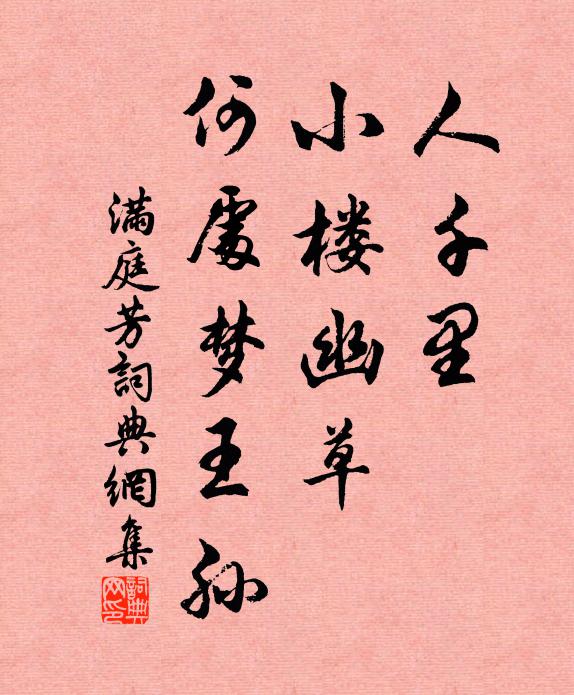 人千里
小楼幽草
何處梦王孙
滿庭芳詞典網集
詞典网印